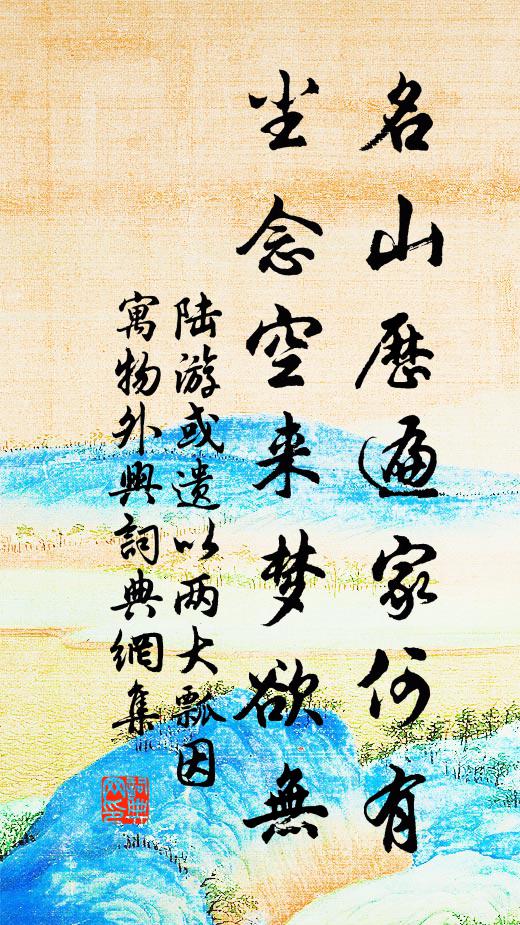 名山歷遍家何有
坐念空来梦欲無
陆游或遗以两大瓢因
寓物外興詞典網集